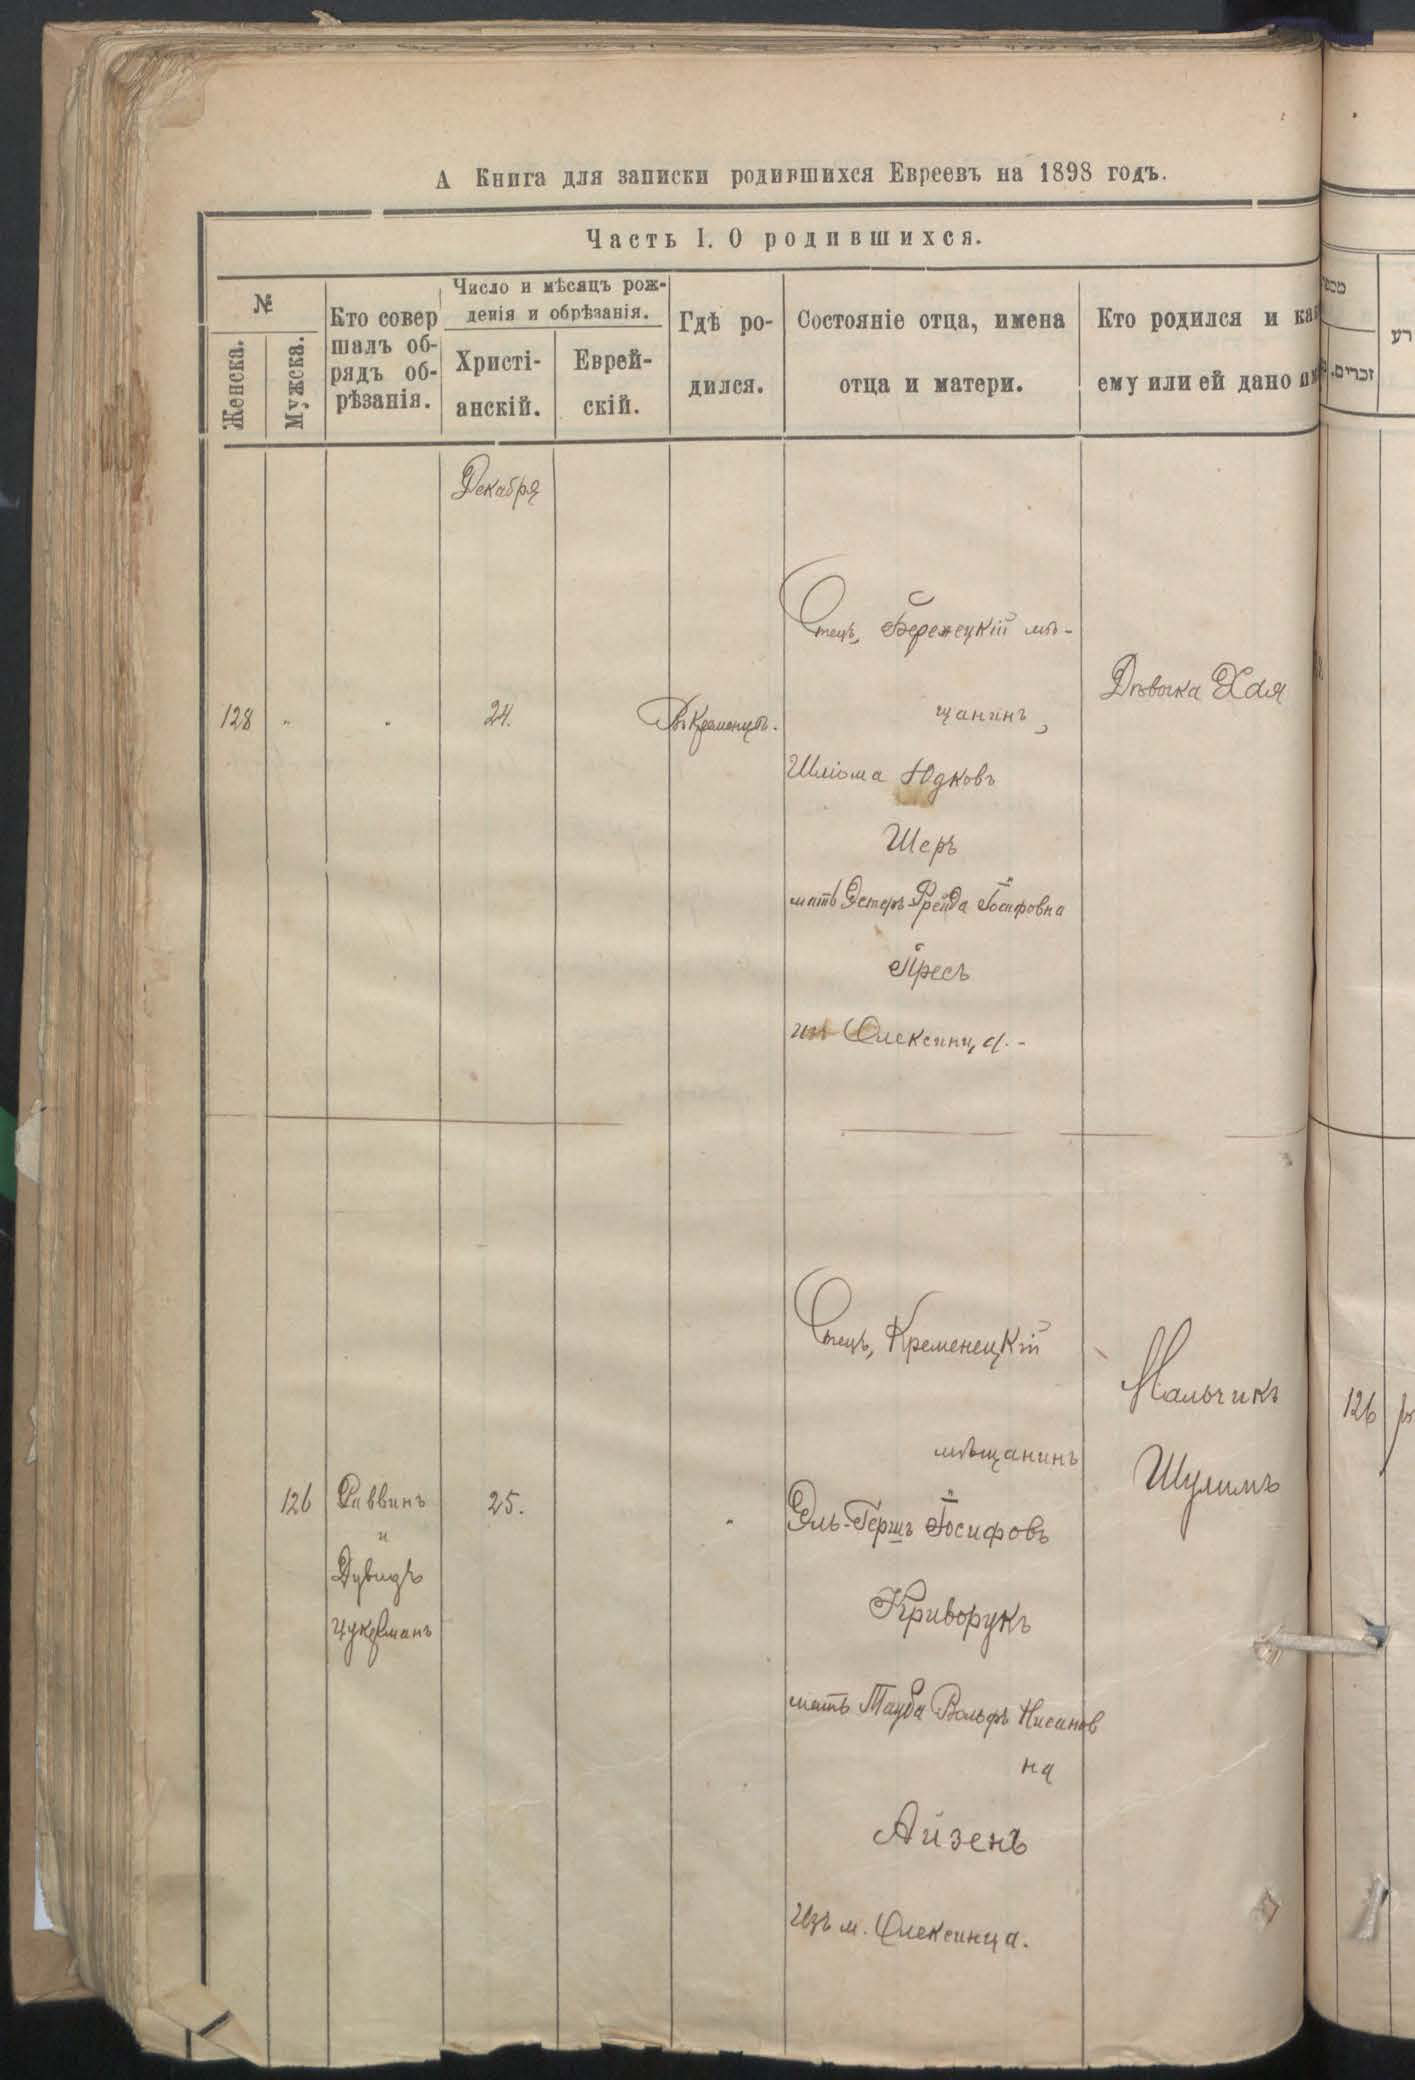 А Книга для записки родившихся Евреевъ на 1898 годъ.
Часть I. О родившихся.
№
Женска.
Мужска.
Кто совер
шалъ об-
рядъ об-
рѣзанія.
Число и мѣсяцъ рож-
денія и обрѣзанія.
Христі-
анскій.
Еврей-
скій.
Гдѣ ро-
дился.
Состояніе отца, имена
отца и матери.
Кто родился и как
ему или ей дано
זכרים.
רע
Декабря
128
24.
Въ Кременцѣ.
Отецъ, Бережецкій мѣ-
щанинъ,
Шліома Юдковъ
Шеръ
мать Эстеръ-Фрейда Іосифовна
Пресъ
изъ Олексинца.-
Дѣвочка Хая
126
Раввинъ
и
Дувидъ
Цукерманъ
25.
Отецъ, Кременецкій
мѣщанинъ
Эль-Гершъ Іосифовъ
Криворукъ
мать Тауба Вольфъ Нисанов
на
Айзенъ
Изъ м. Олексинца.
Мальчикъ
Шулимъ
126